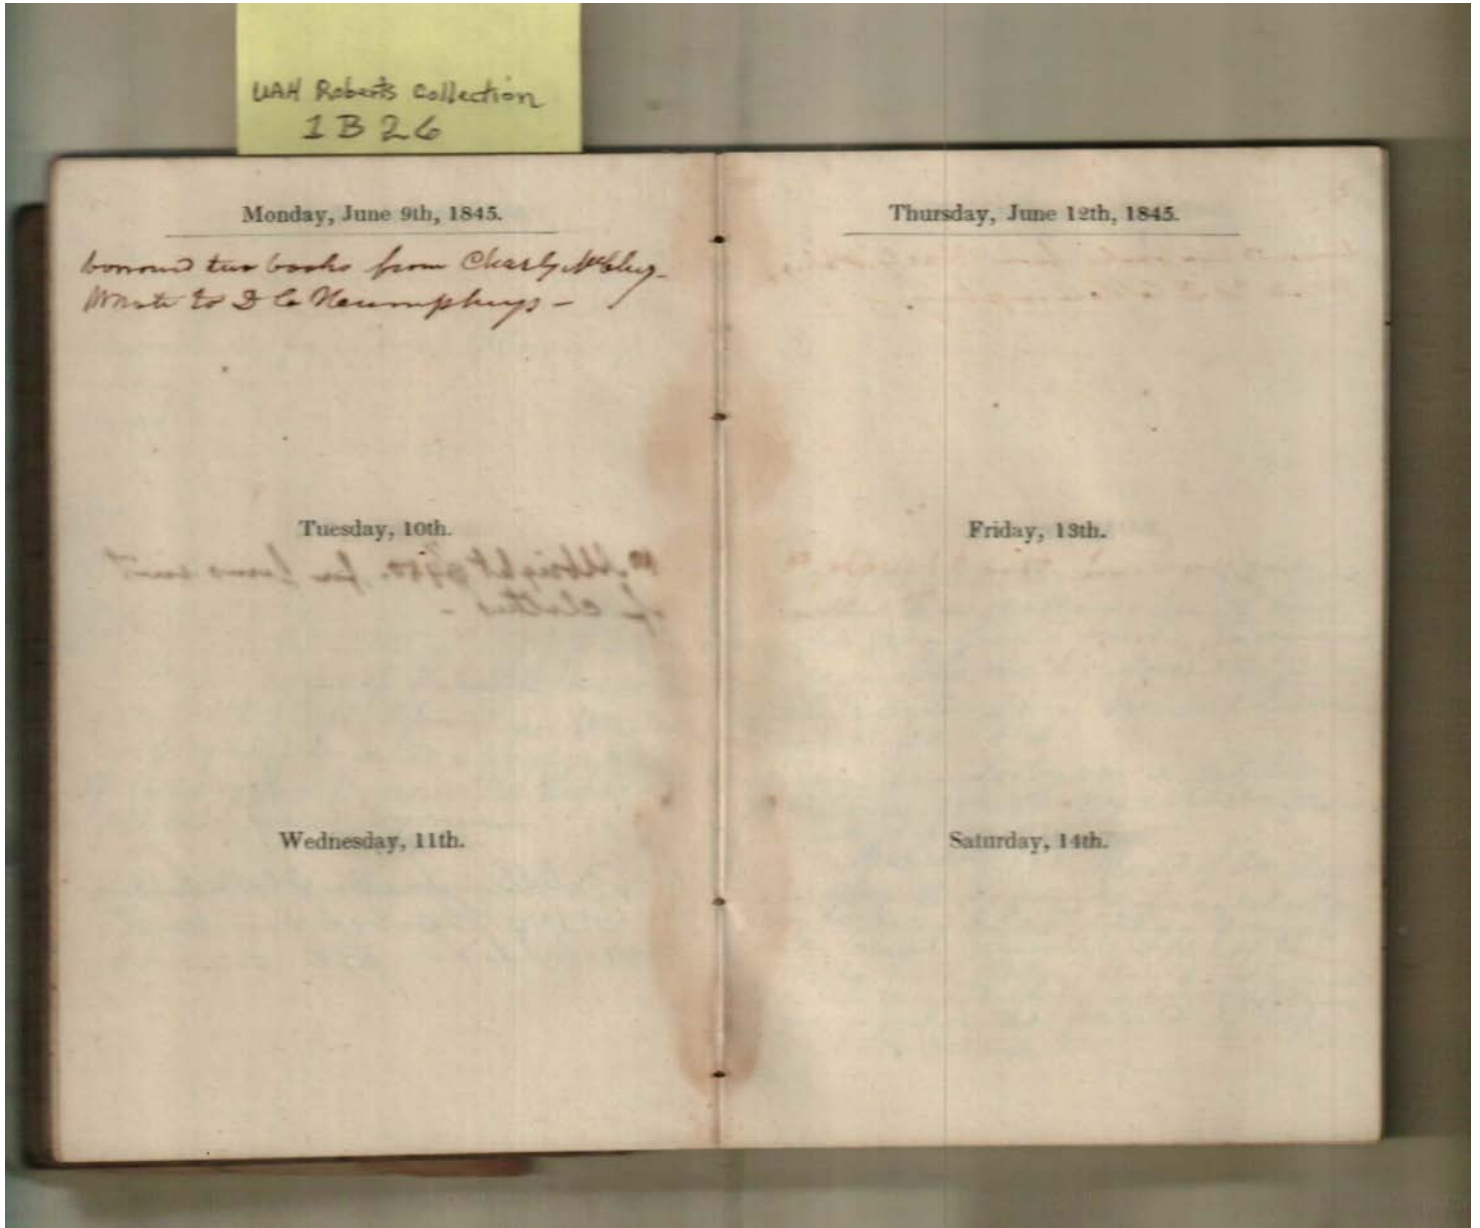 UAH Roberts Collection
1B26
Monday, June 9th, 1845.
borrowed two books from Charly McClug.
Wrote to D C Heumphreys –
Tuesday, 10th.
Wednesday, 11th.
Thursday, June 12th, 1845.
Friday, 13th.
Saturday, 14th.